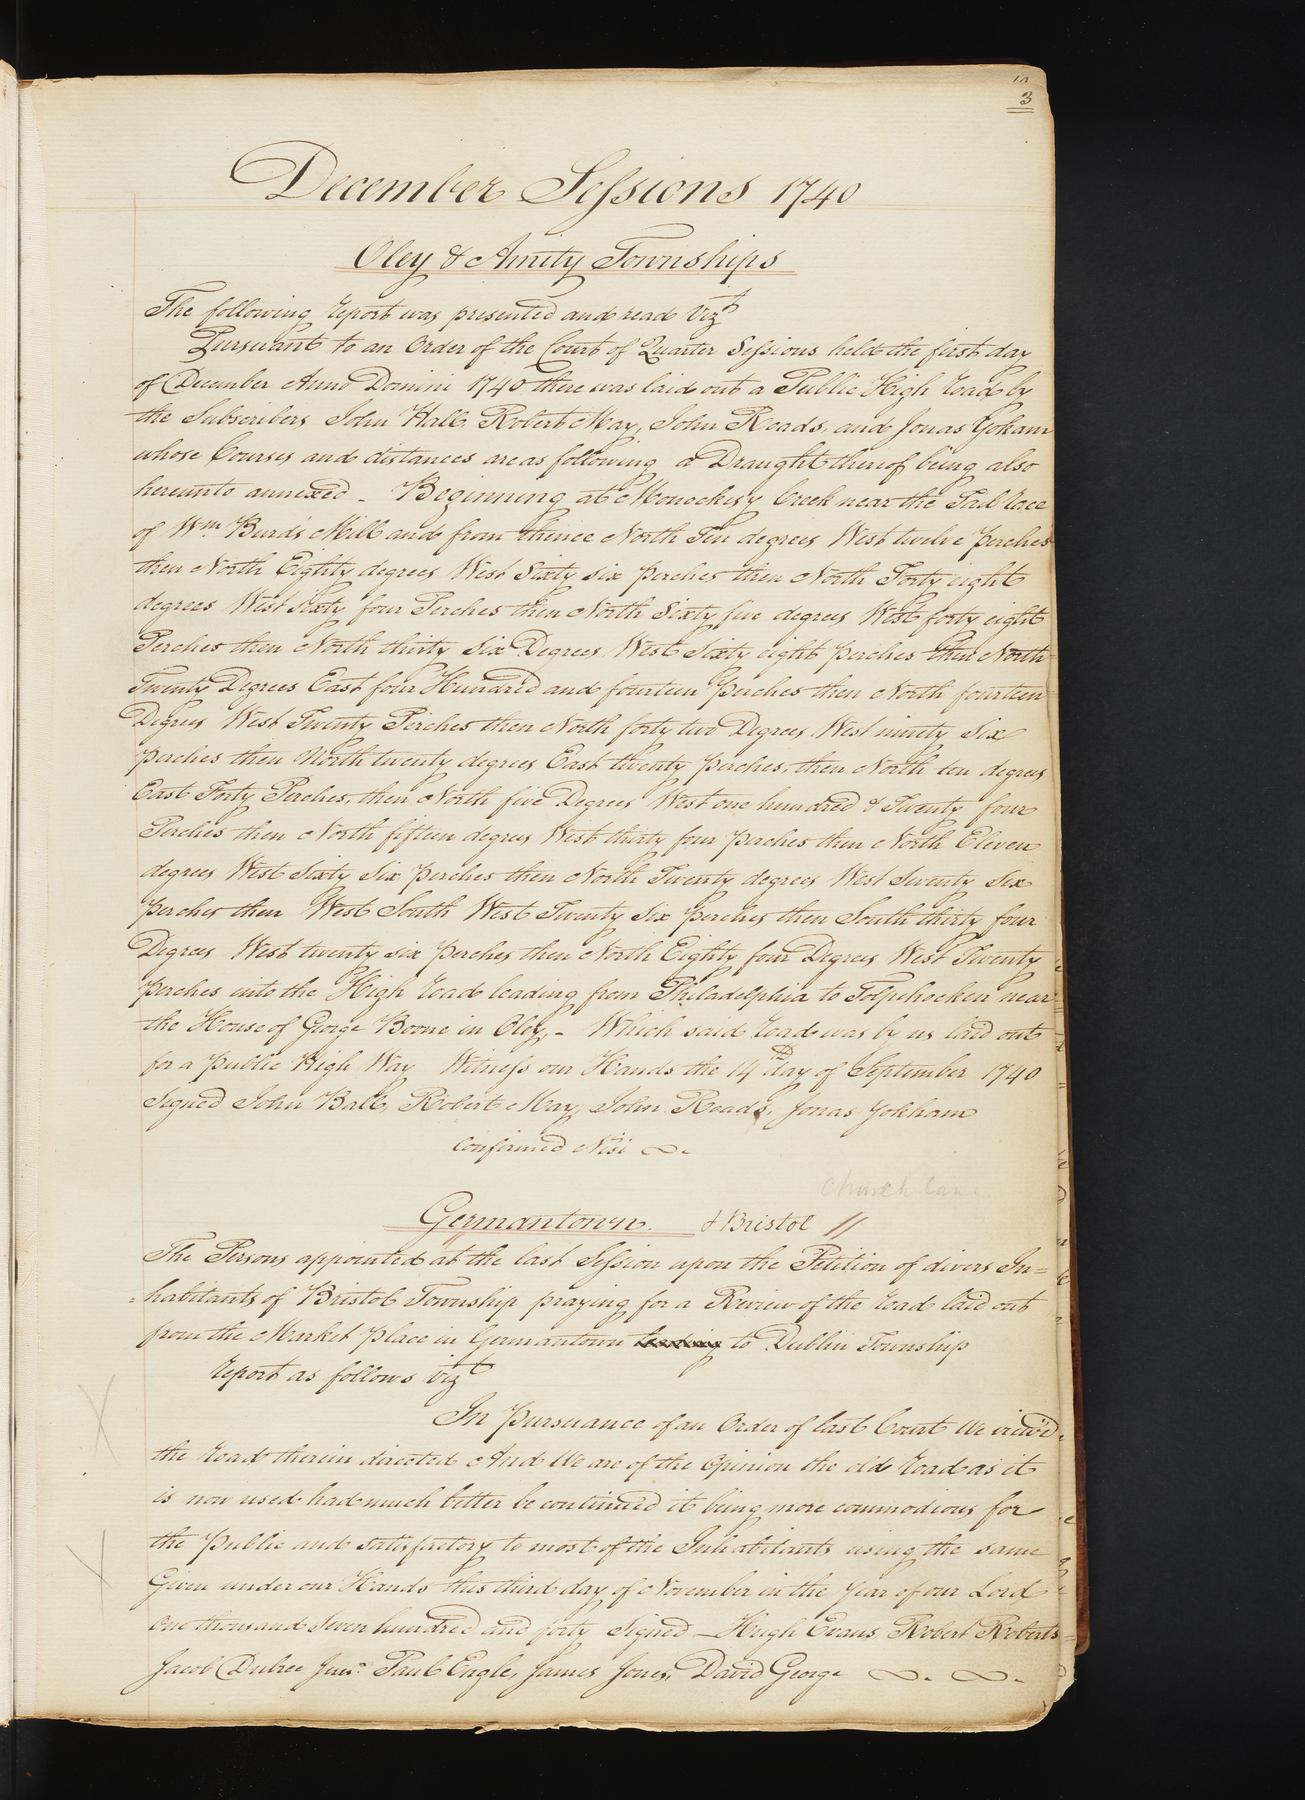 3
December Sessions 1740
Oley & Amity Townships
The following report was presented and read Vizt
Pursuant to an Order of the Court of Quarter Sessions held the first day
of December Anno Domini 1740 there was laid out a Public High road by
the Subscribers John Hall Robert May, John Roads, and Jonas Yokam
whose Courses and distances are as following a Draught thereof being also
hereunto annexed - Beginning at Monockesy Creek near the Tail race
of Wm Burds Mill and from thence North Ten degrees West twelve perches
then North Eighty degrees West Sixty six perches then North Forty eight
degrees West sixty four Perches then North Sixty five degrees West forty eight
Perches then North thirty six Degrees West Sixty eight perches then North
Twenty Degrees East four Hundred and fourteen perches then North fourteen
Degrees West Twenty Perches then North forty two Degrees West ninety Six
perches then North twenty degrees East twenty perches, then North ten degrees
East Forty Perches, then North five Degrees West one hundred & Twenty four
Perches then North fifteen degrees West thirty four perches then North Eleven
degrees West Sixty Six perches then North Twenty degrees West Twenty Six
perches then West South West Twenty Six perches then South thirty four
Degrees West twenty six perches then North Eighty four Degrees West Twenty
perches into the High road leading from Philadelphia to Tolpehocken near
the House of George Boone in Oley, - Which said road was by us laid out
for a public High Way Witness our Hands the 14th day of September 1740
Signed John Ball, Robert May, John Roads, Jonas Yokham
Confirmed Nisi
Church lane
Germantown. & Bristol //
The Persons appointed at the last Session upon the Petition of divers In=
=habitants of Bristol Township praying for a Review of the road laid out
from the Market place in Germantown to Dublin Township
report as follows Vizt
In pursuance of an Order of last Court We view'd
the road therein directed And We are of the Opinion the old road as it
is now used had much better be continued it being more commodious for
the public and satisfactory to most of the Inhabitants using the same
Given under our Hands this third day of November in the year of our Lord
one thousand Seven hundred and forty Signed - Hugh Evans, Robert Roberts
Jacob Dubree Junr. Paul Engle, James Jones, David George